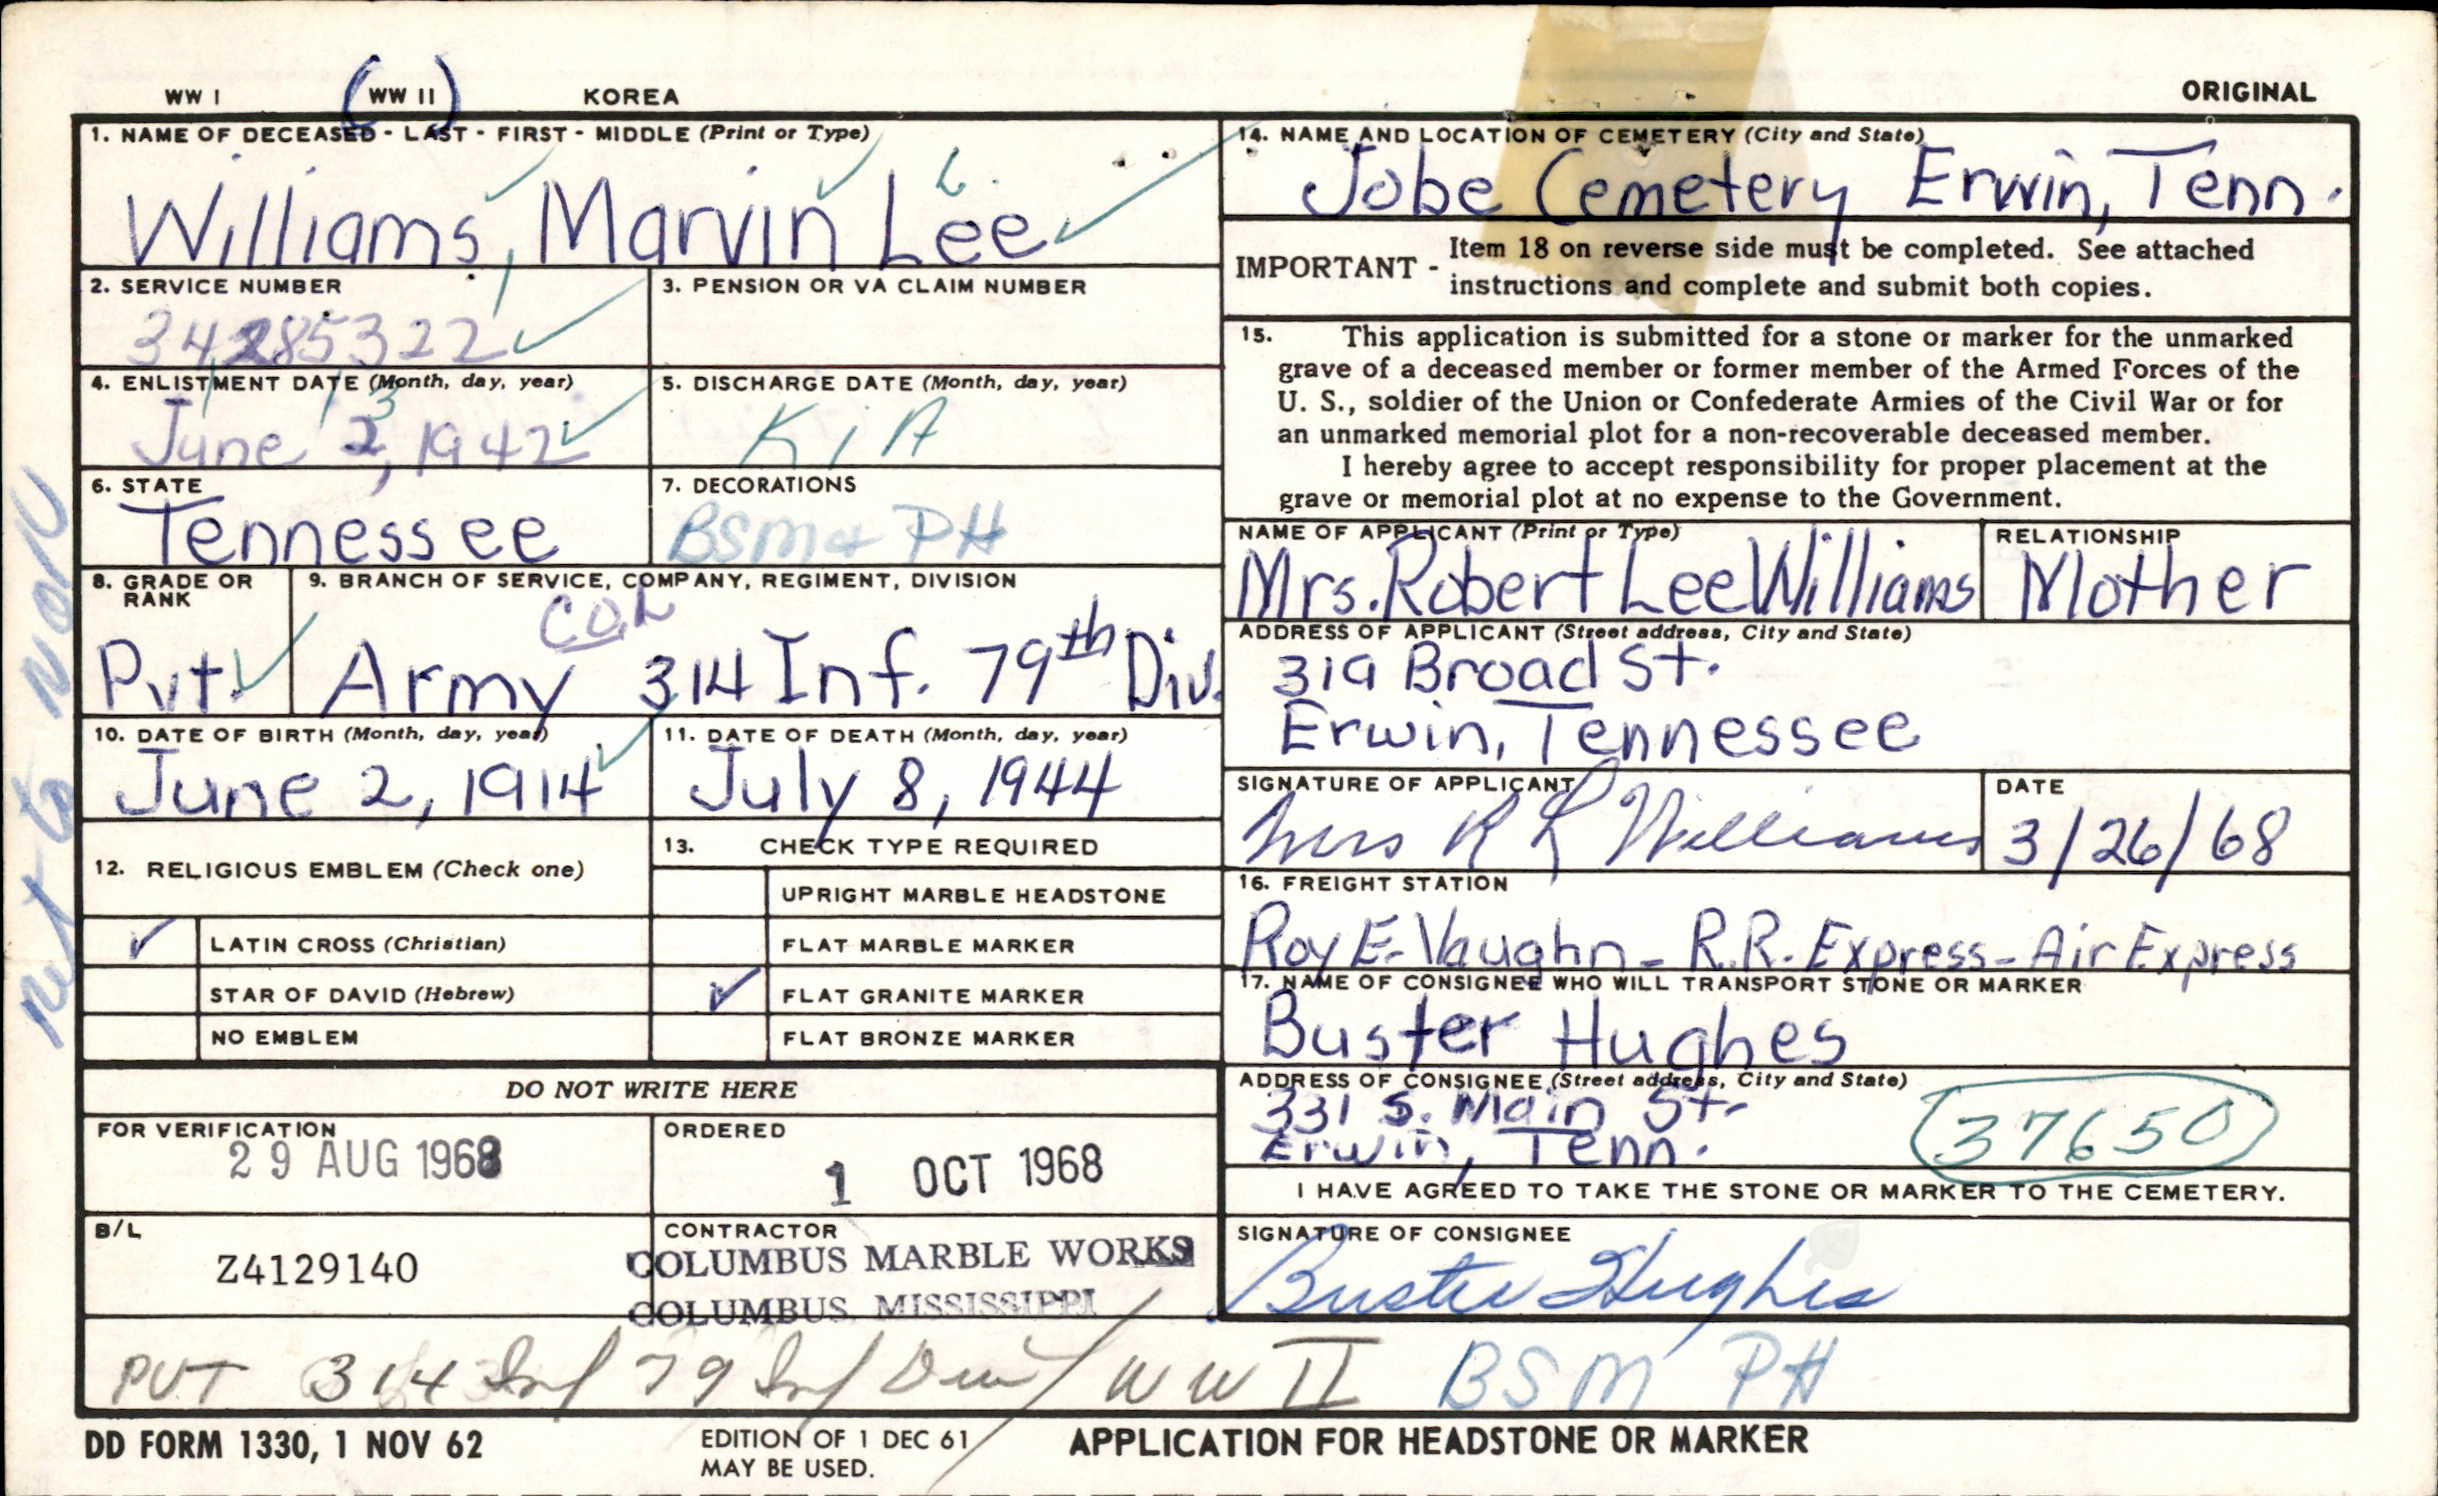 WW I (WW II) KOREA ORIGINAL
1. NAME OF DECEASED - LAST - FIRST - MIDDLE (Print or Type)
Williams, Marvin Lee
2. SERVICE NUMBER
34285322
3. PENSION OR VA CLAIM NUMBER
4. ENLISTMENT DATE (Month, day, year)
3
June 2, 1942
5. DISCHARGE DATE (Month, day, year)
KIA
6. STATE
Tennessee
7. DECORATIONS
BSM & PH
8. GRADE OR RANK
Pvt.
9. BRANCH OF SERVICE, COMPANY, REGIMENT, DIVISION
CO. L
Army 314 Inf. 79th Div.
10. DATE OF BIRTH (Month, day, year)
June 2, 1914
11. DATE OF DEATH (Month, day, year)
July 8, 1944
12. RELIGIOUS EMBLEM (Check one)
✓ LATIN CROSS (Christian)
STAR OF DAVID (Hebrew)
NO EMBLEM
13. CHECK TYPE REQUIRED
UPRIGHT MARBLE HEADSTONE
FLAT MARBLE MARKER
✓ FLAT GRANITE MARKER
FLAT BRONZE MARKER
DO NOT WRITE HERE
FOR VERIFICATION
29 AUG 1968
ORDERED
1 OCT 1968
B/L
Z4129140
CONTRACTOR
COLUMBUS MARBLE WORKS
COLUMBUS, MISSISSIPPI
14. NAME AND LOCATION OF CEMETERY (City and State)
Jobe Cemetery Erwin, Tenn.
IMPORTANT - Item 18 on reverse side must be completed. See attached
instructions and complete and submit both copies.
15. This application is submitted for a stone or marker for the unmarked
grave of a deceased member or former member of the Armed Forces of the
U. S., soldier of the Union or Confederate Armies of the Civil War or for
an unmarked memorial plot for a non-recoverable deceased member.
I hereby agree to accept responsibility for proper placement at the
grave or memorial plot at no expense to the Government.
NAME OF APPLICANT (Print or Type)
Mrs. Robert Lee Williams
RELATIONSHIP
Mother
ADDRESS OF APPLICANT (Street address, City and State)
319 Broad St.
Erwin, Tennessee
SIGNATURE OF APPLICANT
Mrs R L Williams
DATE
3/26/68
16. FREIGHT STATION
Roy E. Vaughn - R.R. Express - Air Express
17. NAME OF CONSIGNEE WHO WILL TRANSPORT STONE OR MARKER
Buster Hughes
ADDRESS OF CONSIGNEE (Street address, City and State)
331 S. Main St.
Erwin, Tenn.
37650
I HAVE AGREED TO TAKE THE STONE OR MARKER TO THE CEMETERY.
SIGNATURE OF CONSIGNEE
Buster Hughes
PVT 314 Inf 79 Inf Div / WW II BSM PH
DD FORM 1330, 1 NOV 62
EDITION OF 1 DEC 61
MAY BE USED.
APPLICATION FOR HEADSTONE OR MARKER